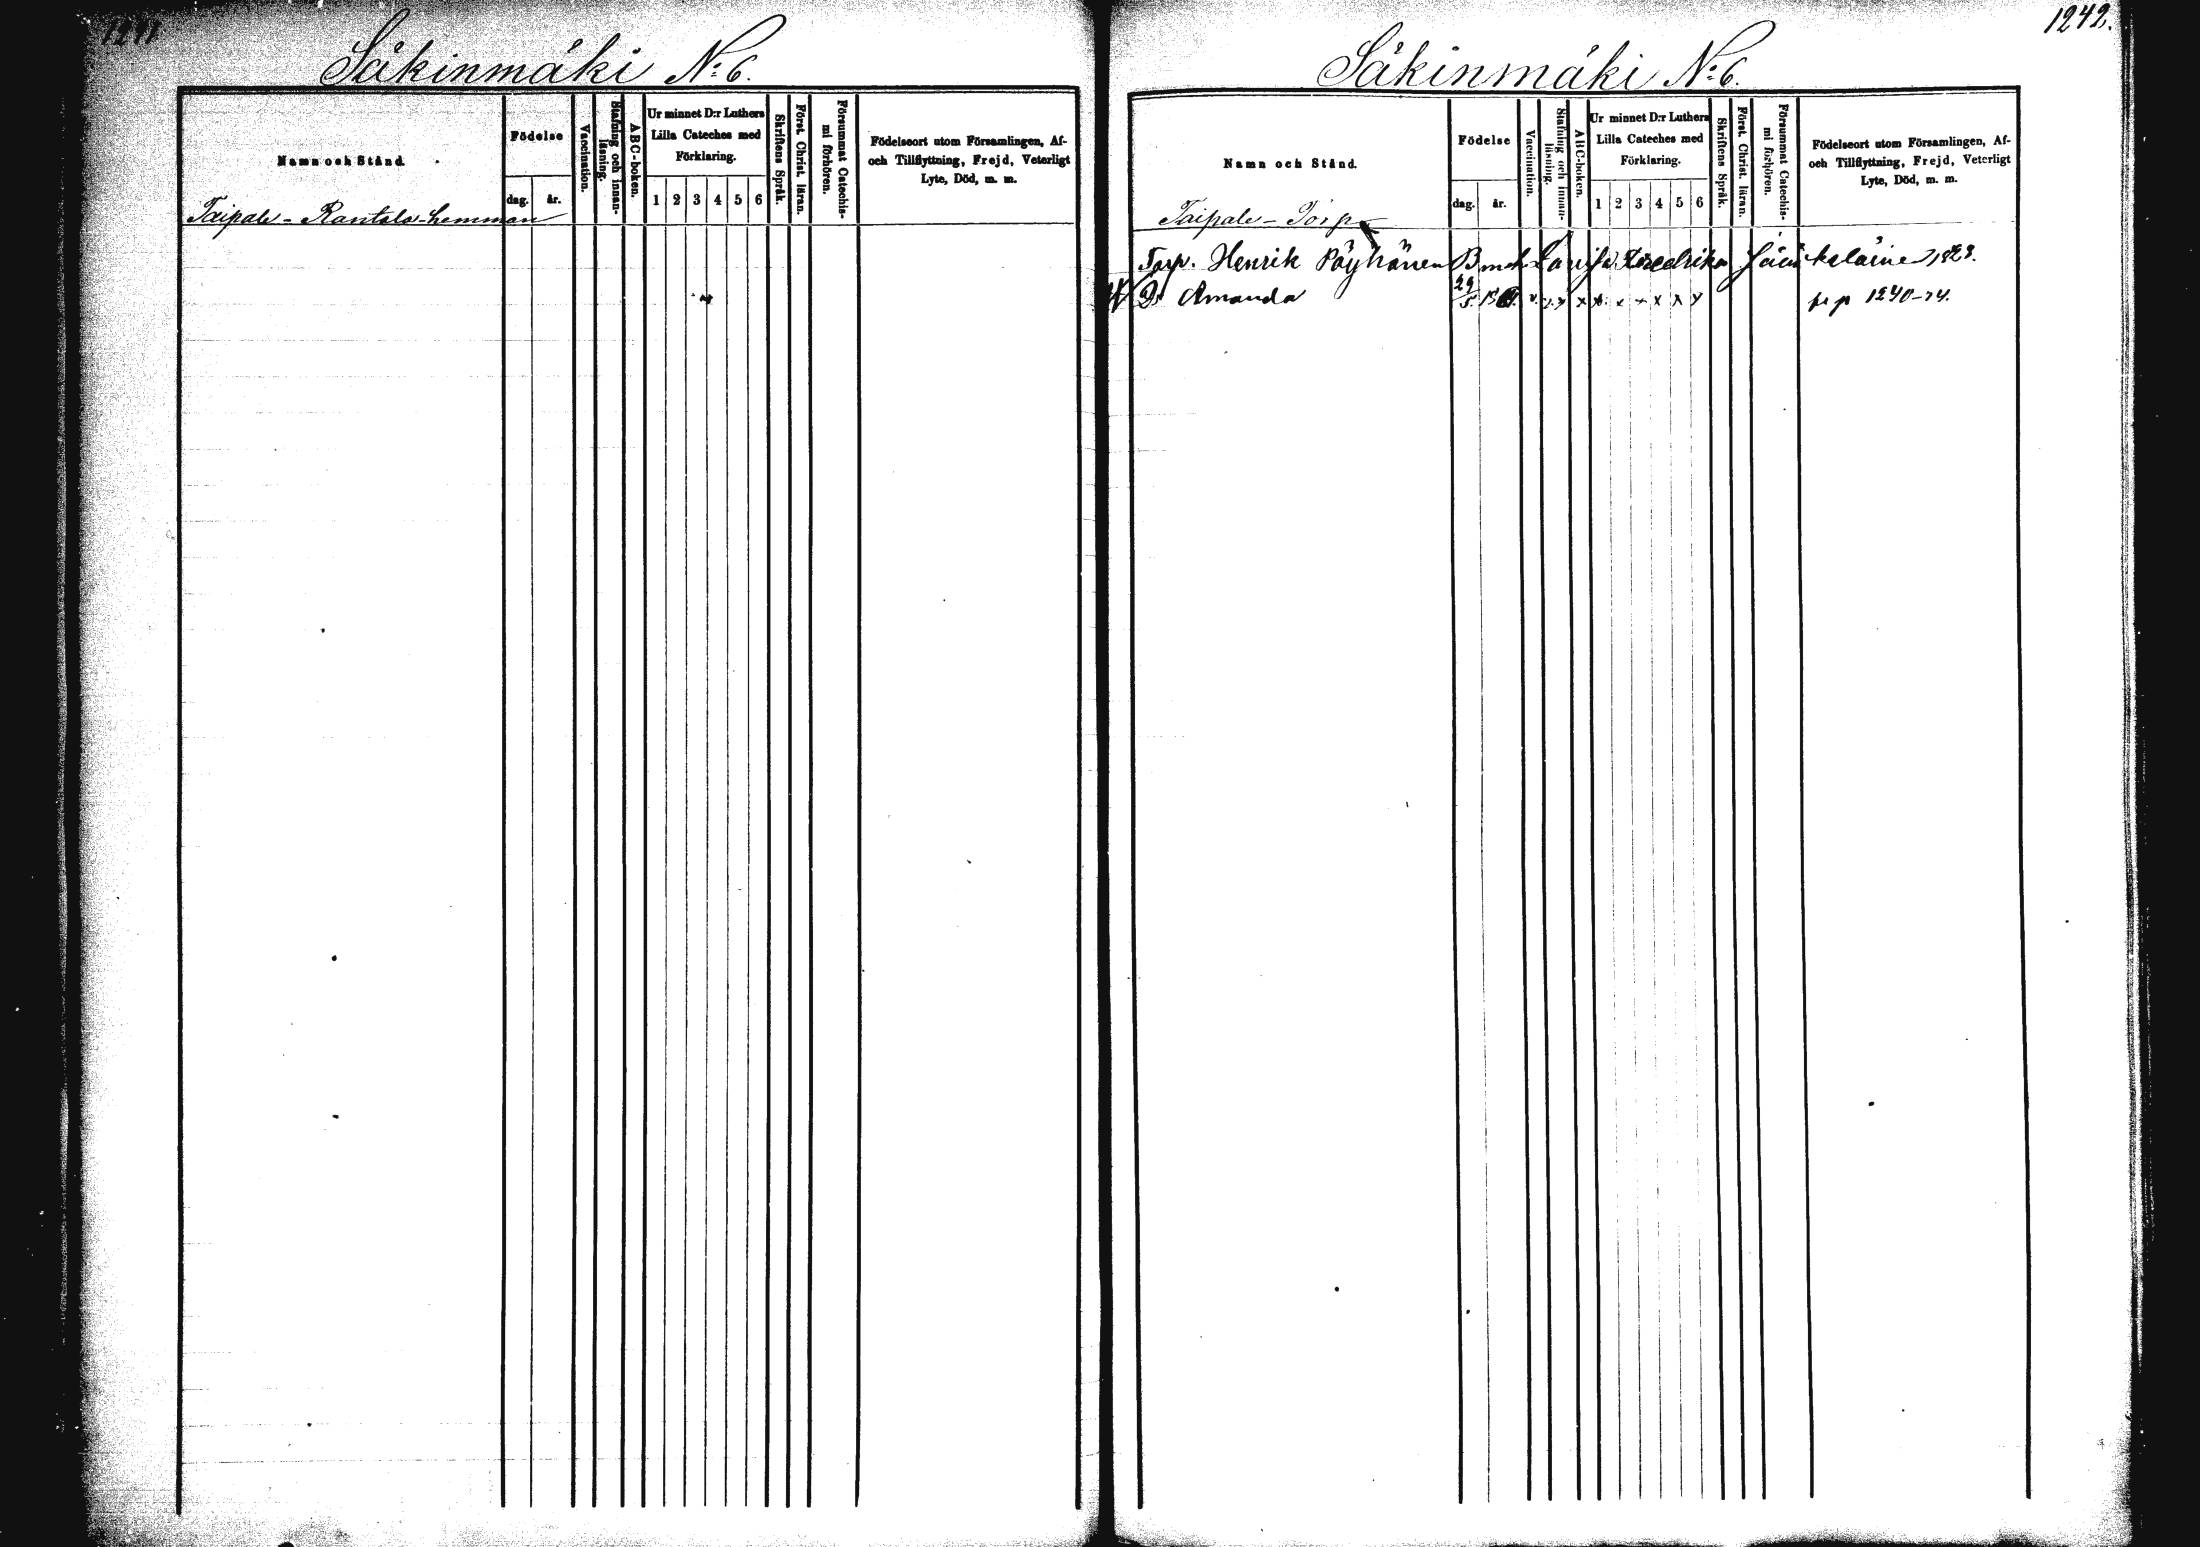 1241
Säkinmäki N:o 6.
Namn och Stånd.
Födelse
dag.
år.
Vaccination.
Stafning och innan-
läsning.
ABC-boken.
Ur minnet D:r Luthers
Lilla Cateches med
Förklaring.
1 2 3 4 5 6
Skriftens Språk.
Först. Christ. läran.
Försummat Catechis-
mi förhören.
Födelseort utom Församlingen, Af-
och Tillflyttning, Frejd, Veterligt
Lyte, Död, m. m.
Taipale - Rantala-hemman
1242.
Säkinmäki N:o 6.
Namn och Stånd.
Födelse
dag.
år.
Vaccination.
Stafning och innan-
läsning.
ABC-boken.
Ur minnet D:r Luthers
Lilla Cateches med
Förklaring.
1 2 3 4 5 6
Skriftens Språk.
Först. Christ. läran.
Försummat Catechis-
mi förhören.
Födelseort utom Församlingen, Af-
och Tillflyttning, Frejd, Veterligt
Lyte, Död, m. m.
Taipale - Torp
Torp. Henrik Pöyhönen Lovisa Fredrika
D. Amanda 29/5. x x x x x x x p p 1240-74.